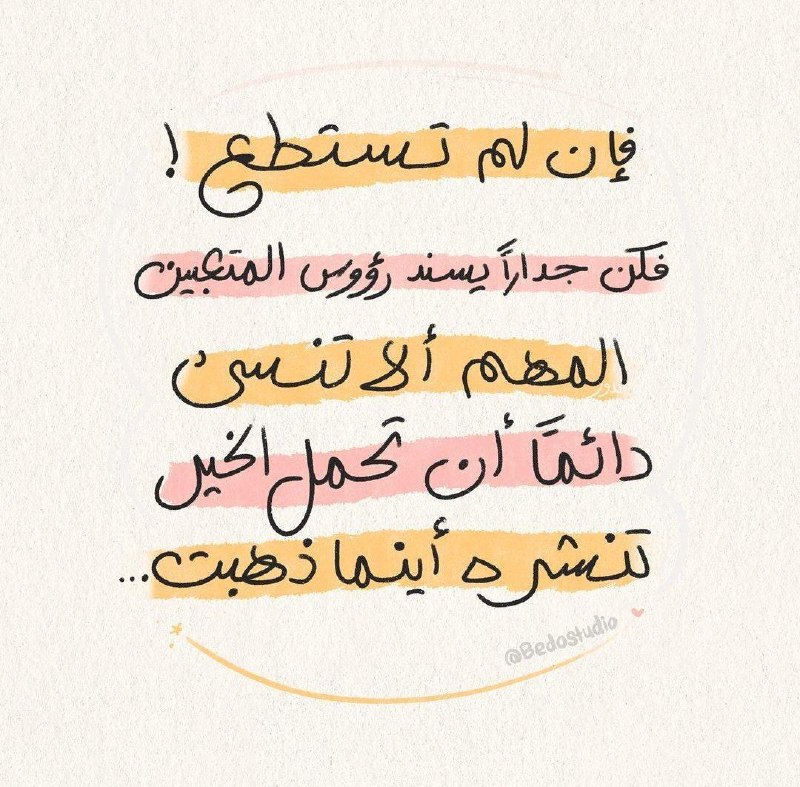 فإن لم تستطع !
فكن جداراً يسند رؤوس المتعبين
المهم ألا تنسى
دائمًا أن تحمل الخير
تنشره أينما ذهبت...
@Bedostudio